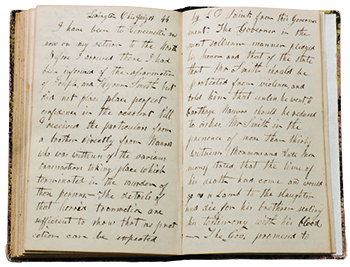 Lexington Ohio July 14 44
I have been to Cincinnati and
am on my return to the North
Before I arrived there I had
been informed of the assassination
of Joseph and Hyrum Smith but
did not place perfect
confidence in the report till
I received the particulars from
a brother directly from Nauvoo
who was witness of the various
transactions taking place which
terminated in the murder of
these persons — The details of
that horrid transaction are
sufficient to show that no prot
ection can be expected
by L D Saints from this Govern
ment. The Governor in the
most solemn manner pledged
his honor and that of the state
that Mr Smith should be
protected from violence and
told him that unless he went to
Carthage Nauvoo should be reduced
to ashes. Mr Smith in the
presence of more than thirty
witnesses
stated that the time of
his death had come and would
go as a Lamb to the slaughter
and die for his brethren sealing
his testimony with his blood
— The Gov. promised to